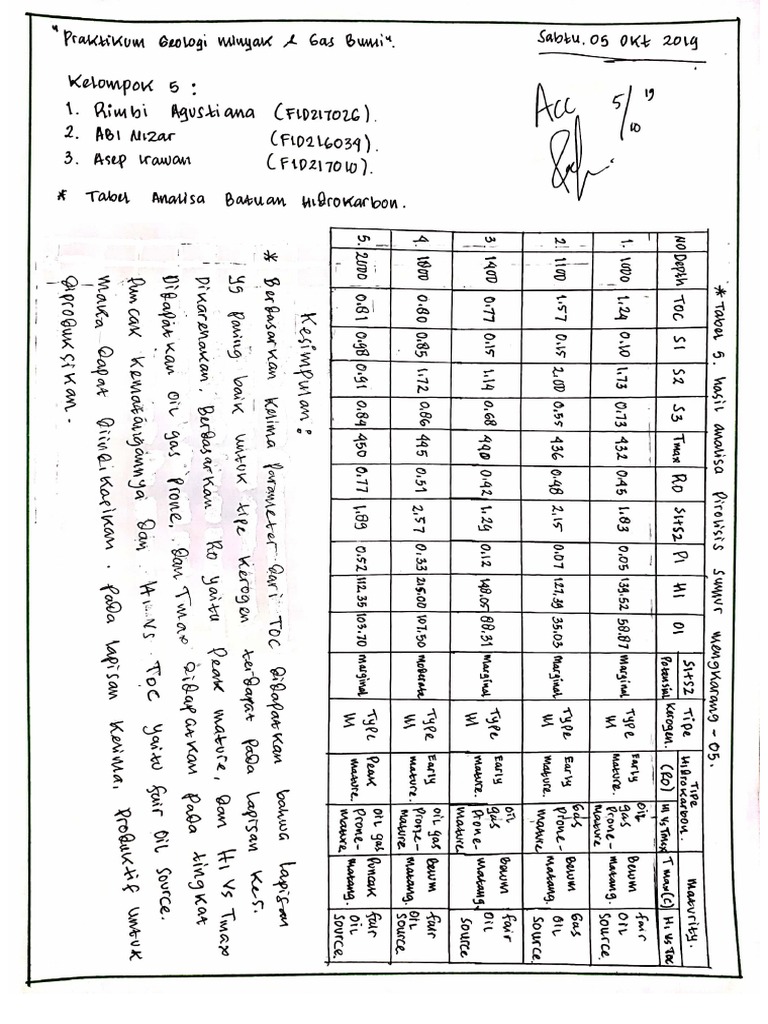 "Praktikum Geologi Minyak & Gas Bumi".
Sabtu. 05 Okt 2019
Kelompok 5 :
1. Rimbi Agustiana (F1D217026).
2. ABI Nizar (F1D216039).
3. Asep Irawan (F1D217010).
Acc 5/10 19
* Tabel Analisa Batuan Hidrokarbon.
* Tabel 5. hasil analisa Pirolisis Sumur mengkarang - 05.
NO Depth TOC S1 S2 S3 Tmax RO S1+S2 PI HI OI S1+S2 Potensial Tipe Kerogen. Tipe Hidrokarbon. Maturity.
(RO) HI vs Tmax T max (C) HI vs TOC
1. 1000 1.24 0.10 1.73 0.73 432 0.45 1.83 0.05 139.52 58.87 marginal Type III Early mature. oil gas Prone-mature Belum matang. fair Oil Source.
2. 1100 1.57 0.15 2.00 0.55 436 0.48 2.15 0.07 127.39 35.03 marginal Type III Early mature. Gas prone-mature Belum matang. Gas Oil Source.
3. 1400 0.77 0.15 1.14 0.68 440 0.42 1.29 0.12 148.05 88.31 Marginal Type III Early mature. oil gas Prone-mature Belum matang. fair Oil Source
4. 1800 0.80 0.85 1.72 0.86 445 0.51 2.57 0.33 215.00 107.50 moderate Type III Early mature. oil gas Prone-mature Belum matang. fair Oil Source.
5. 2000 0.81 0.98 0.91 0.84 450 0.77 1.89 0.52 112.35 103.70 marginal Type III Peak mature. oil gas Prone-mature Puncak matang. fair Oil Source.
Kesimpulan :
* Berdasarkan kelima Parameter dari TOC didapatkan bahwa lapisan
yg paling baik untuk tipe kerogen terdapat pada lapisan ke5.
Dikarenakan, Berdasarkan Ro yaitu Peak mature, dan HI Vs Tmax
Didapatkan oil gas prone, dan Tmax didapatkan pada tingkat
Puncak kematangannya dan HI Vs TOC yaitu fair oil source.
maka dapat diindikasikan, pada lapisan kelima, produktif untuk
diproduksikan.